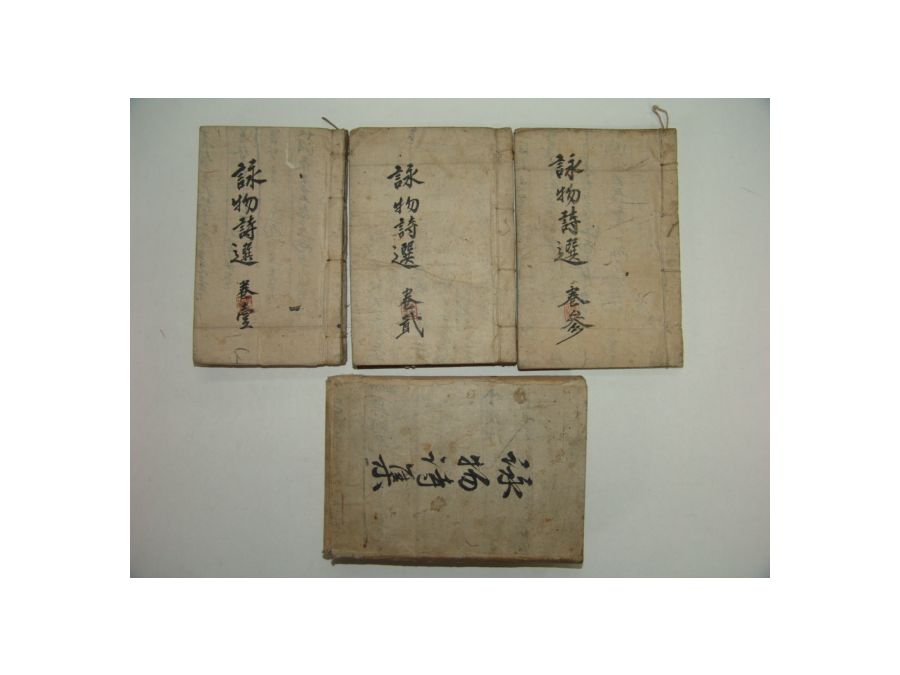 詠物詩選 卷壹
詠物詩選 卷貳
詠物詩選 卷參
詠物詩集